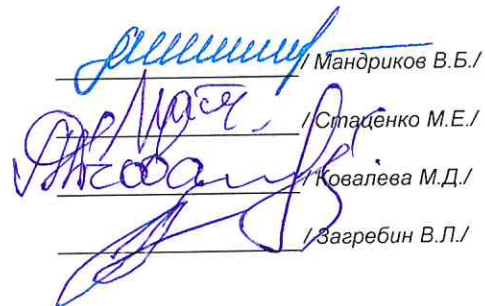 / Мандриков В.Б./
/ Стаценко М.Е./
/ Ковалева М.Д./
/ Загребин В.Л./